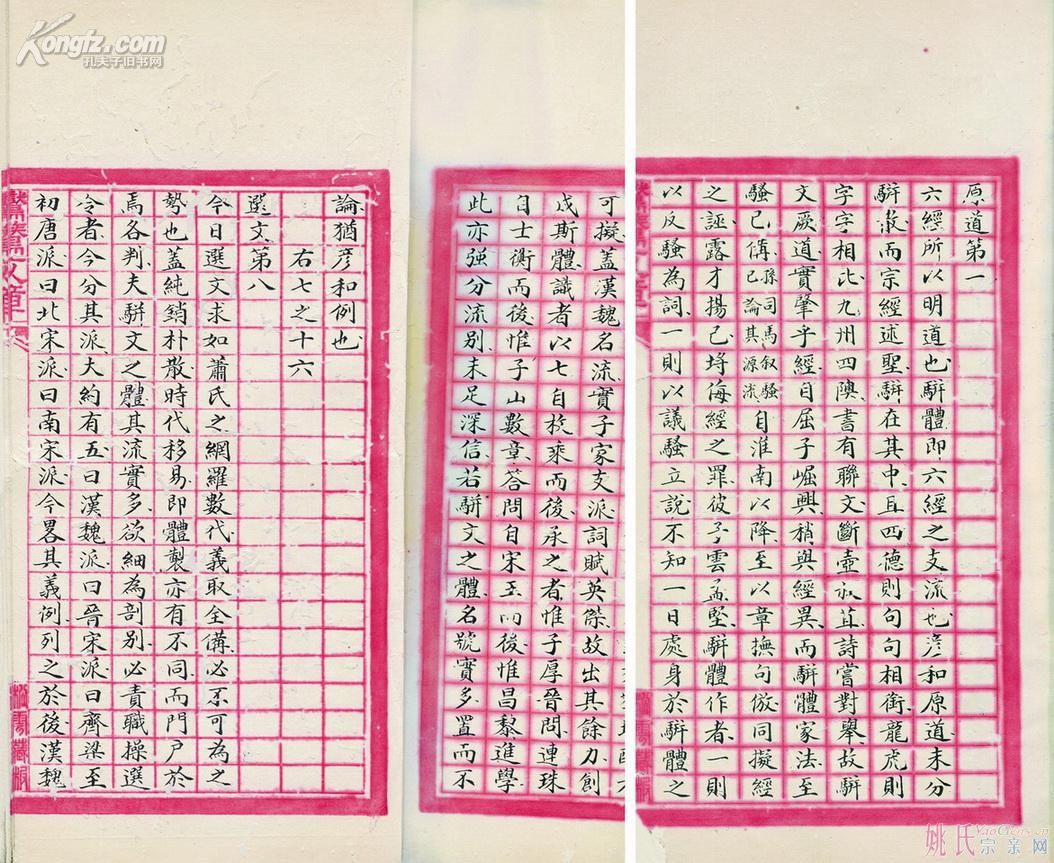 原道第一
六經所以明道也駢體即六經之支流也彦和原道未分
駢散而宗經述聖駢在其中且四德則句句相銜龍虎則
字字相比九州四隩書有聯文斷壺叔苴詩嘗對舉故駢
文厥道實肇乎經自屈子崛興稍與經異而駢體家法至
騷已備孫司馬叙騷已論其源流自淮南以降至以章撫句倣同擬經
之誣露才揚己埓侮經之罪彼子雲孟堅駢體作者一則
以反騷為詞一則以議騷立說不知一日處身於駢體之
可擬蓋漢魏名流實子家支派詞賦英傑故出其餘力創
成斯體識者以七自枚乘而後承之者惟子厚晉問連珠
自士衡而後惟子山數章答問自宋玉而後惟昌黎進學
此亦強分流別未足深信若駢文之體名號實多置而不
論猶彦和例也
右七之十六
選文第八
今日選文求如蕭氏之網羅數代義取全備必不可為之
勢也蓋純銷朴散時代移易即體製亦有不同而門户於
焉各判夫駢文之體其流實多欲細為剖別必責職操選
令者今分其派大約有五曰漢魏派曰晉宋派曰齊梁至
初唐派曰北宋派曰南宋派今畧其義例列之於後漢魏
Kongfz.com
孔夫子旧书网
姚氏宗亲网